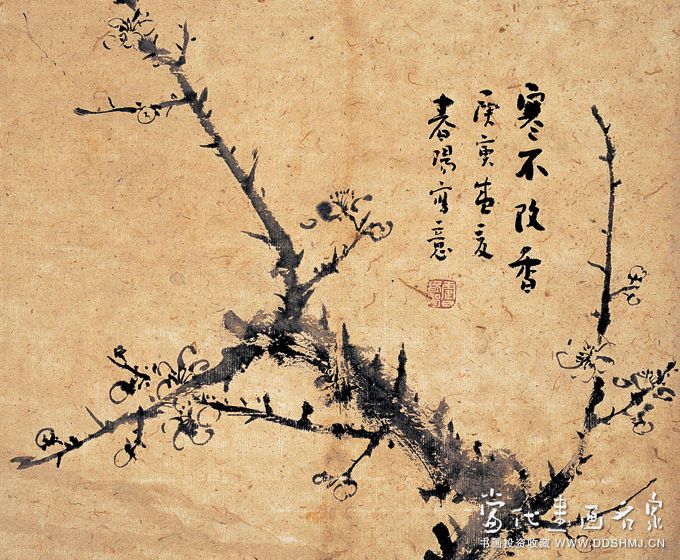 寒不改香
庚寅夏
春陽寫意
当代書画名家
书画投资收藏 WWW.DDSHMJ.CN